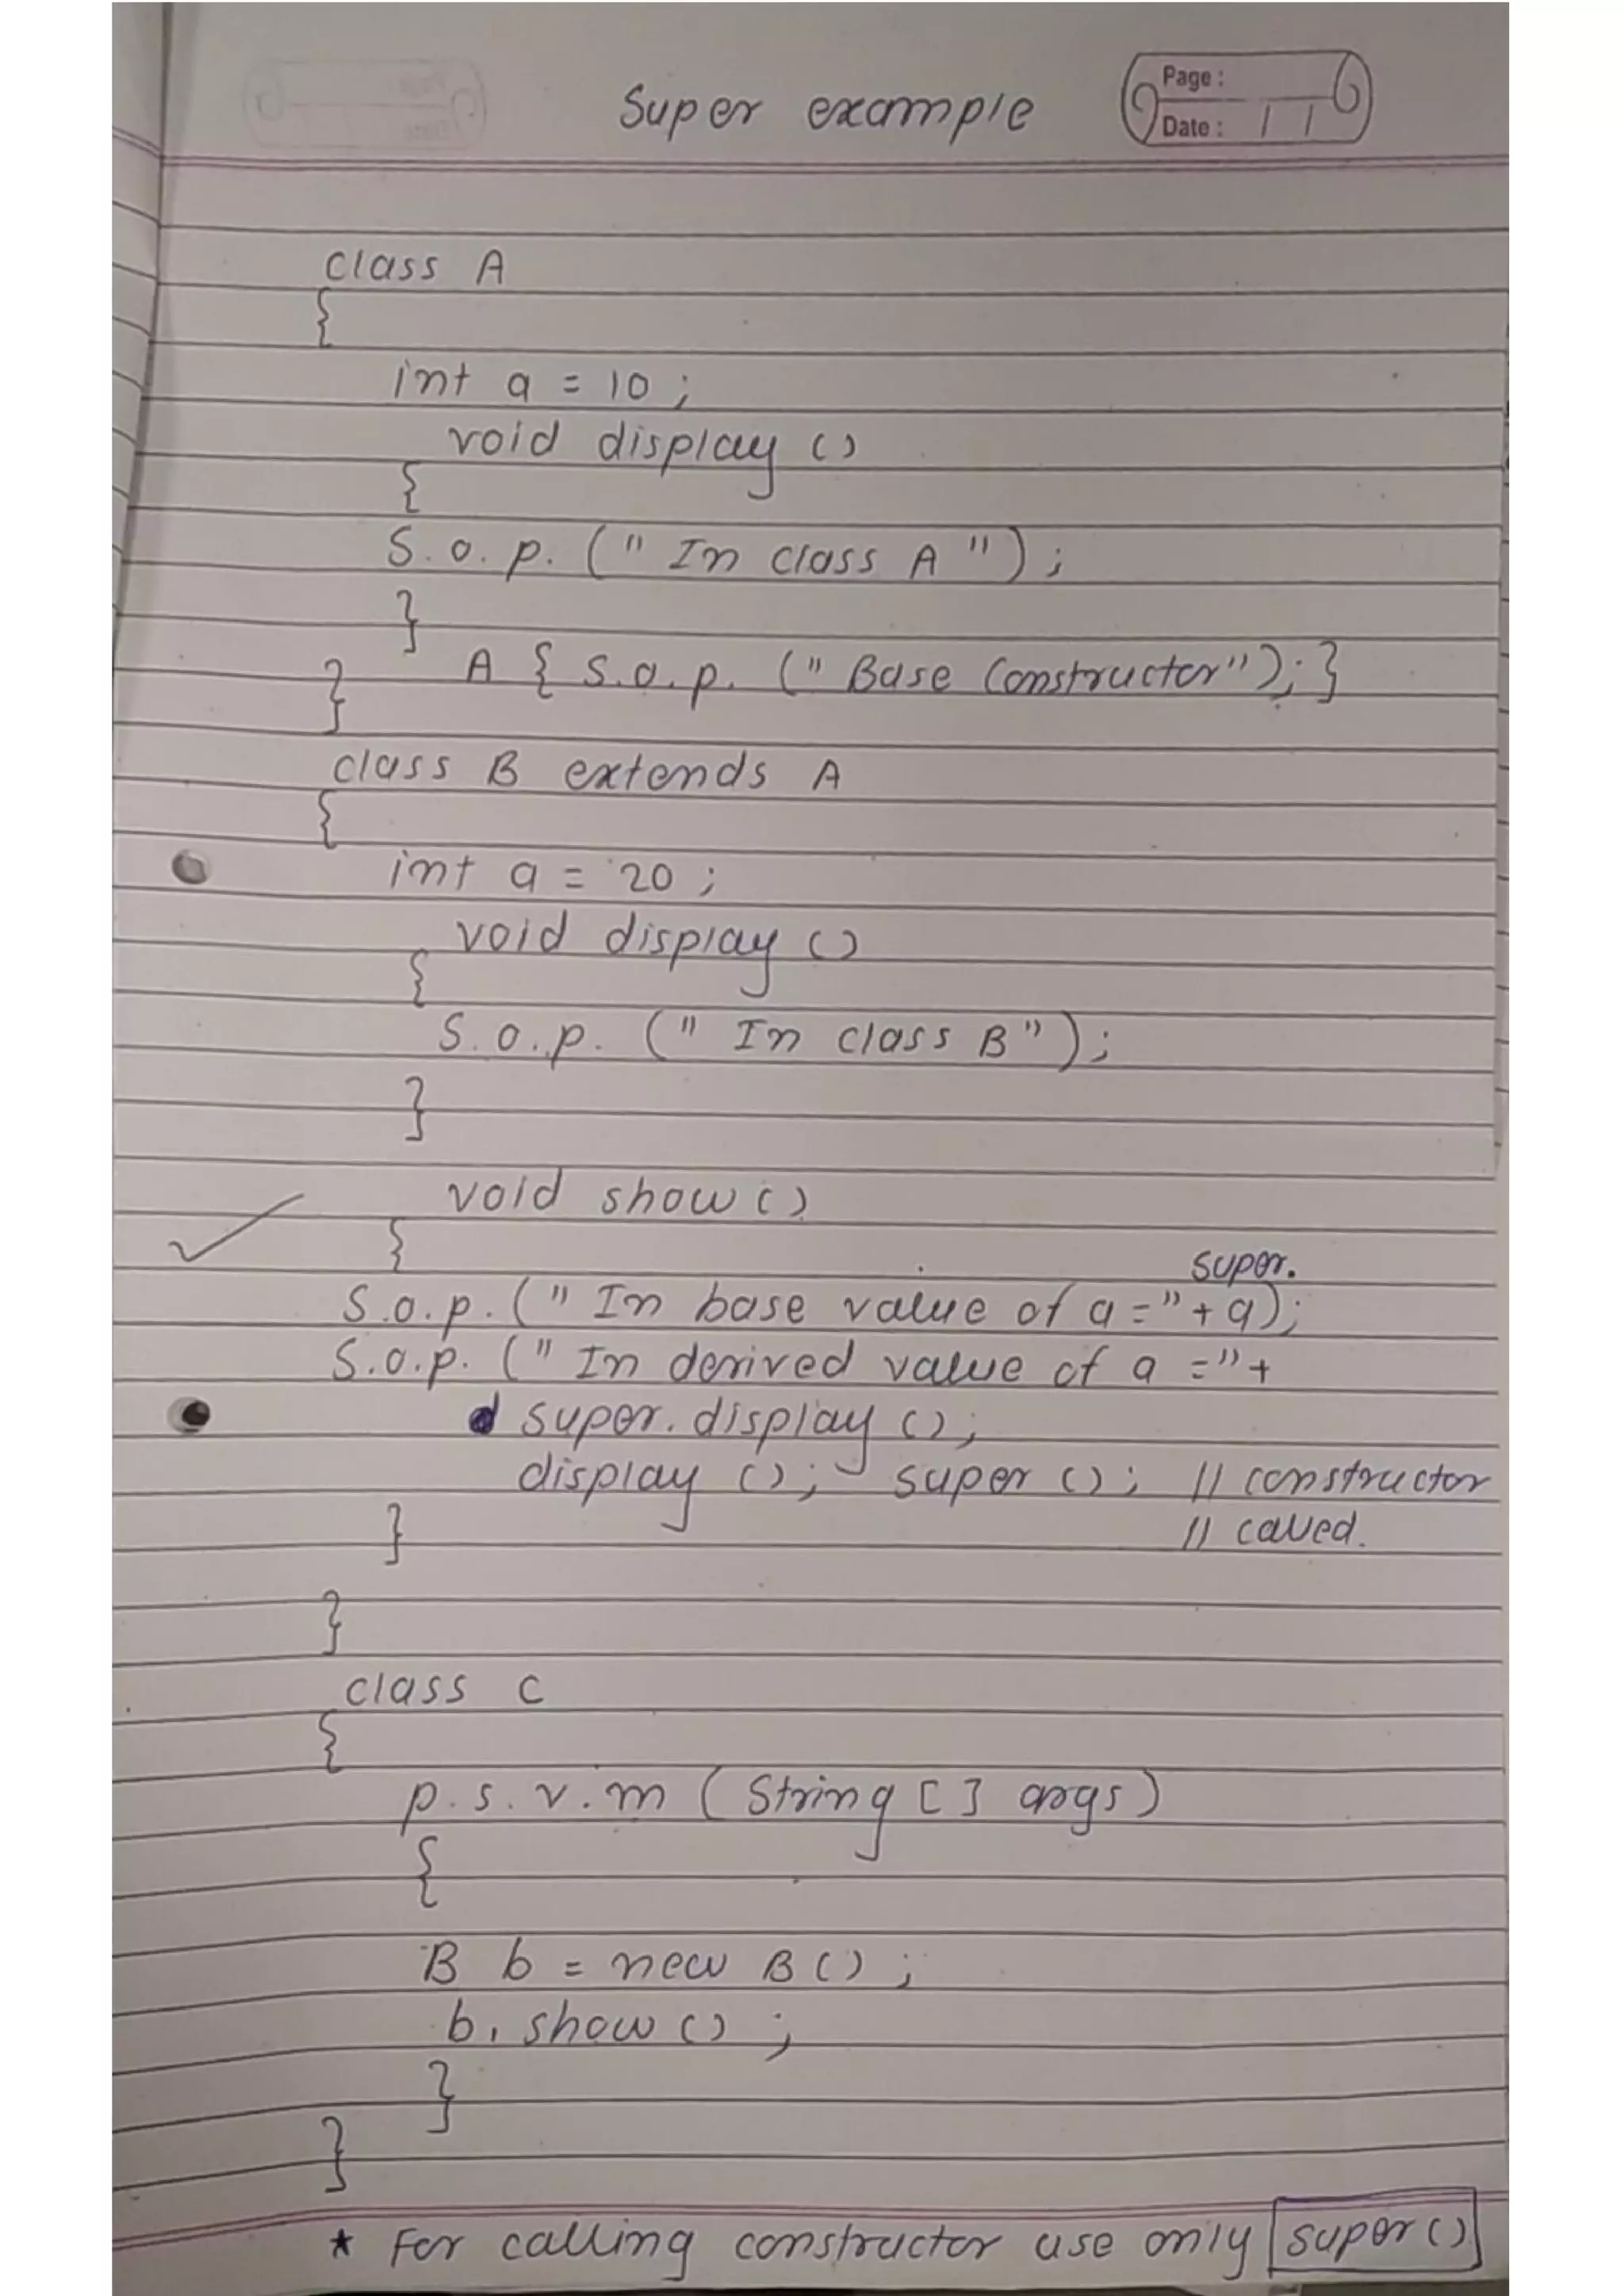 Super example
Page :
Date :
class A
{
int a = 10 ;
void display ()
{
S.o.p. (" In class A ") ;
}
A { S.o.p. (" Base Constructor"); }
}
class B extends A
{
int a = 20 ;
void display ()
{
S.o.p. (" In class B ") ;
}
void show ()
{
super.
S.o.p. (" In base value of a =" + a);
S.o.p. (" In derived value of a =" +
super.display ();
display (); super (); // constructor
// called.
}
}
class C
{
p.s.v.m ( String [ ] args )
{
B b = new B () ;
b. show () ;
}
}
* For calling constructor use only super ()